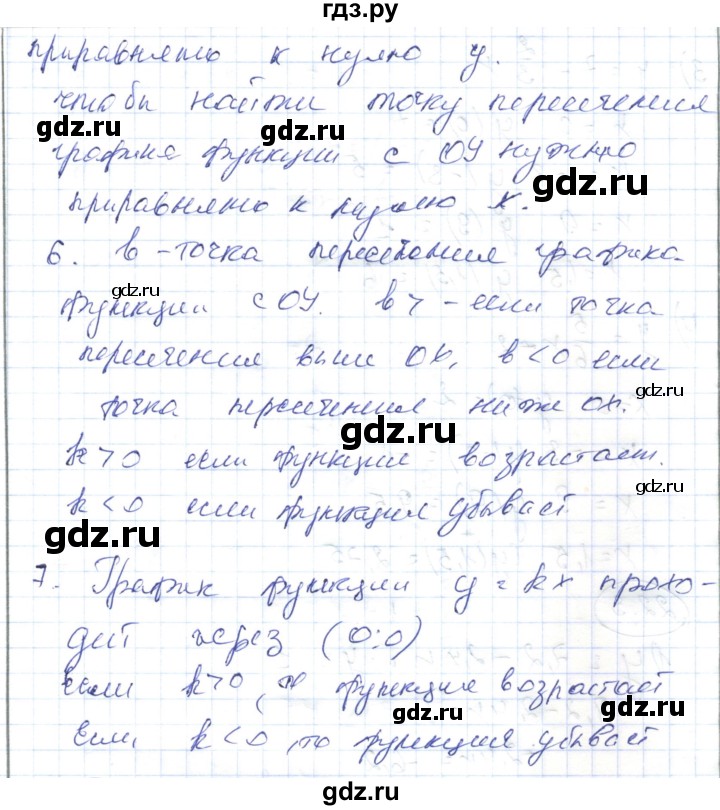 гдз.ру
приравнять к нулю y.
чтобы найти точку пересечения
gdz.ru
gdz.ru
графика функции с OY нужно
gdz.ru
приравнять к нулю x.
6. b - точка пересечения графика
gdz.ru
функции с OY. b > - если точка
пересечения выше OX, b < 0 если
gdz.ru
точка пересечения ниже OX.
gdz.ru
k > 0 если функция возрастает.
k < 0 если функция убывает
gdz.ru
7. График функции y = kx прохо-
gdz.ru
дит через (0:0)
если k > 0, то функция возрастает
gdz.ru
gdz.ru
Если k < 0, то функция убывает